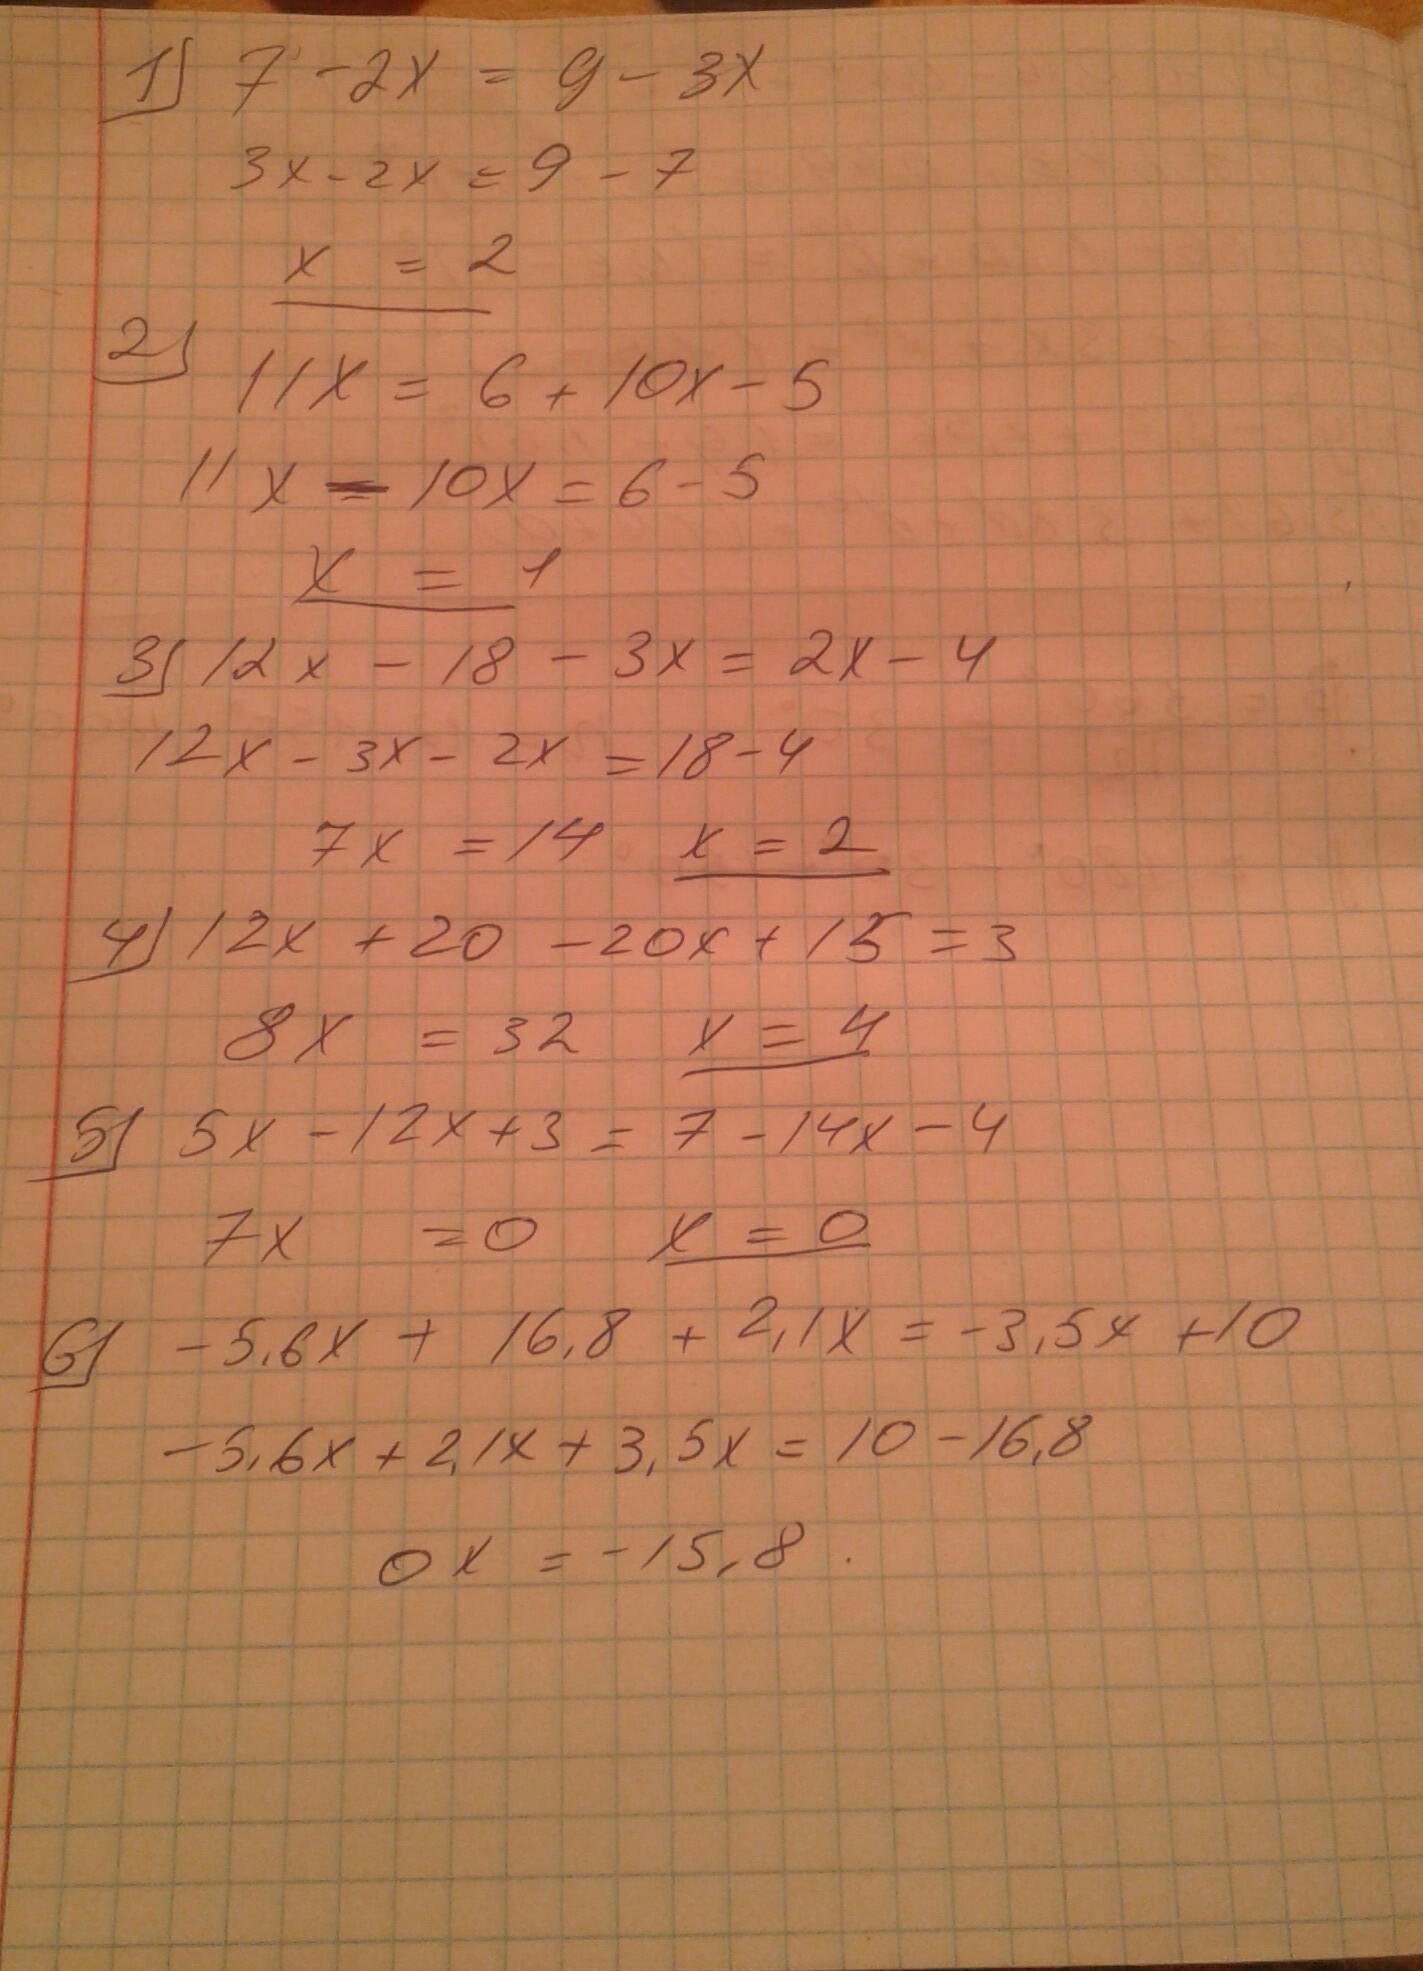 1) 7 - 2x = 9 - 3x
3x - 2x = 9 - 7
x = 2
2) 11x = 6 + 10x - 5
11x - 10x = 6 - 5
x = 1
3) 12x - 18 - 3x = 2x - 4
12x - 3x - 2x = 18 - 4
7x = 14 x = 2
4) 12x + 20 - 20x + 15 = 3
8x = 32 x = 4
5) 5x - 12x + 3 = 7 - 14x - 4
7x = 0 x = 0
6) -5,6x + 16,8 + 2,1x = -3,5x + 10
-5,6x + 2,1x + 3,5x = 10 - 16,8
0x = -15,8.